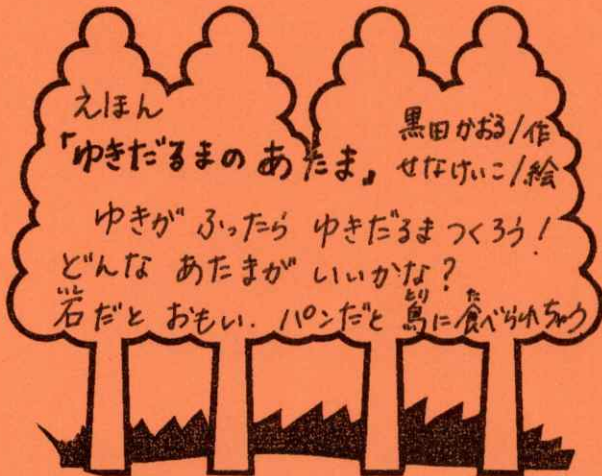 えほん
「ゆきだるまの あたま」
黒田かおる/作
せなけいこ/絵
ゆきが ふったら ゆきだるまつくろう!
どんな あたまが いいかな?
石だと おもい. パンだと 鳥に食べられちゃう
いし とり た